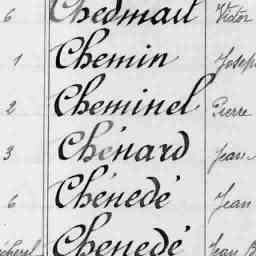 6 Chedmail Victor
1 Chemin Joseph
2 Cheminel Pierre
3 Chénard Jean
6 Chénedé Jean
Chenedé Jean B